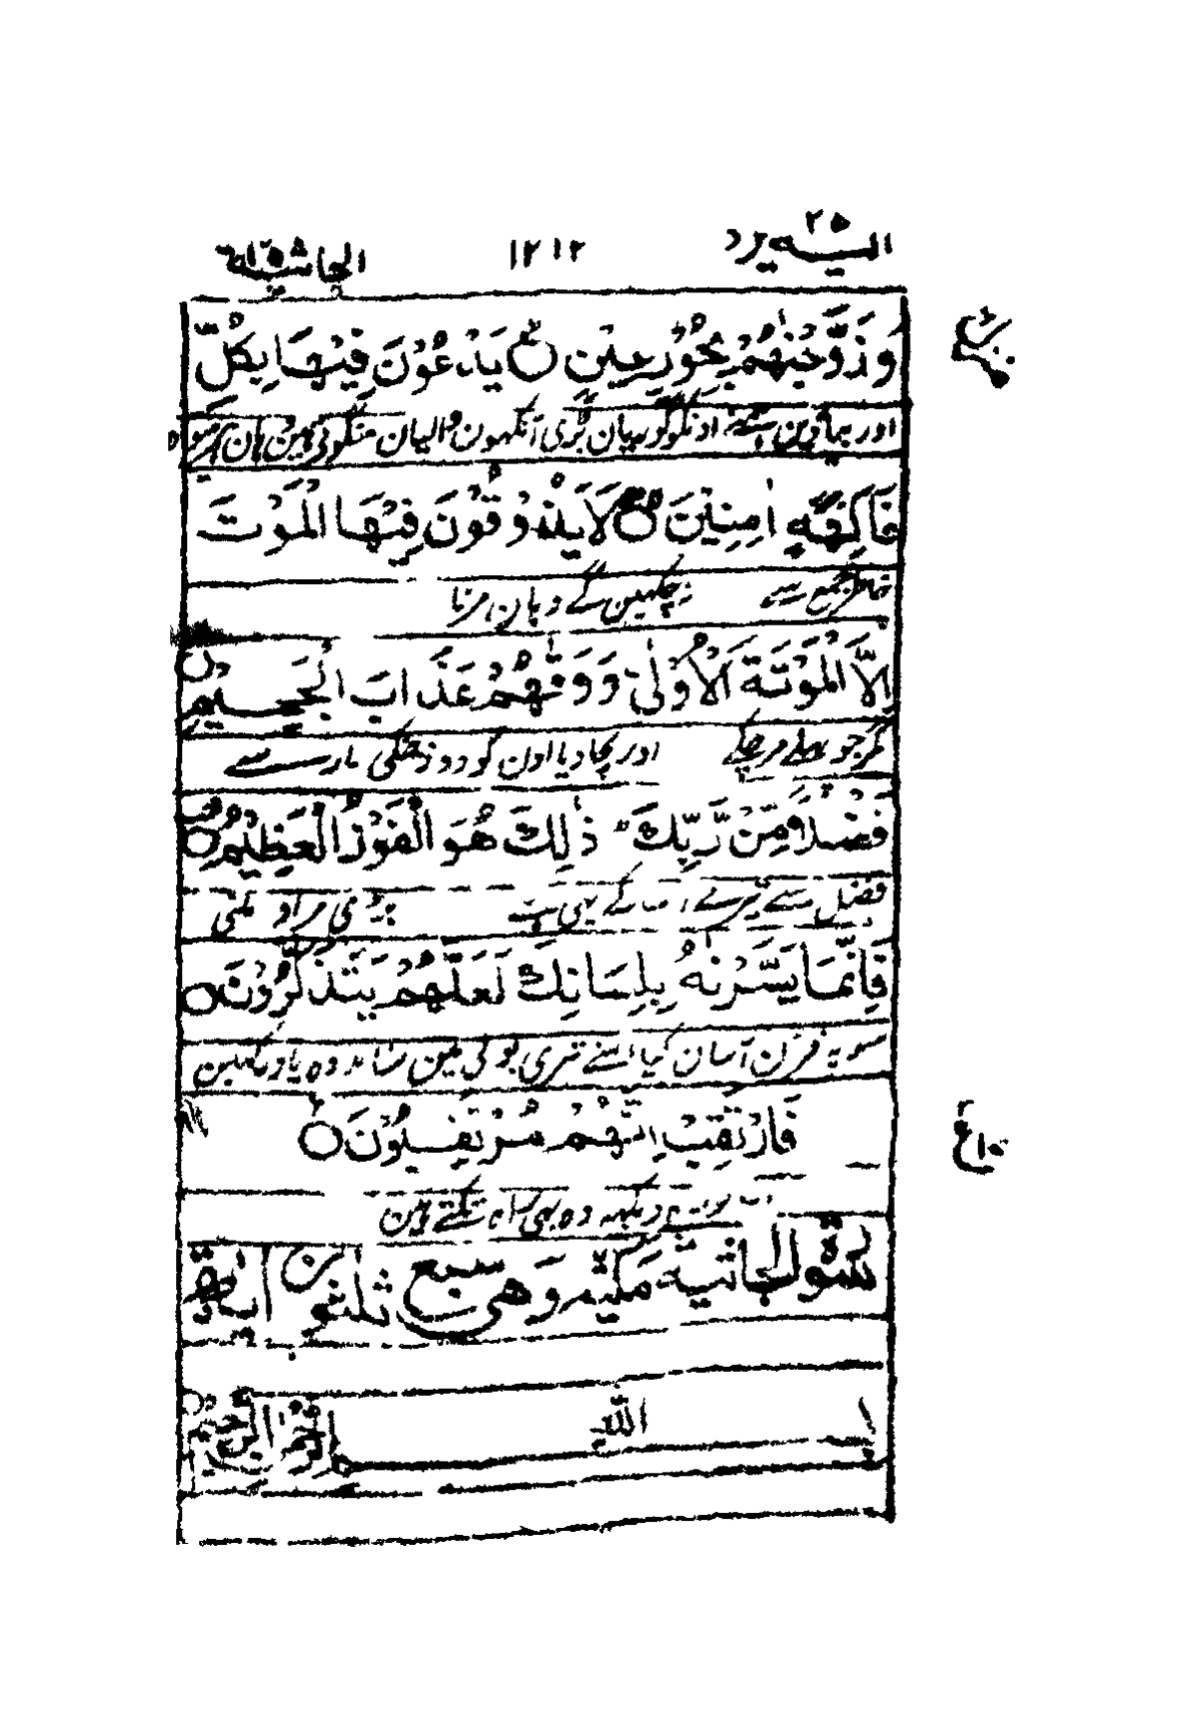 الیه یرد ۲۵ ۱۲۱۲ الجاثیة ۴۵
وَزَوَّجْنٰهُمْ بِحُوْرٍ عِیْنٍ ۝ یَدْعُوْنَ فِیْهَا بِکُلِّ
اور بیاہ دین ہمنے اونکو گوریان بڑی آنکہون والیان منگوتی ہین وہان ہر میوہ
فَاکِهَةٍ اٰمِنِیْنَ ۝ لَا یَذُوْقُوْنَ فِیْهَا الْمَوْتَ
خاطر جمع سے نہ چکہین گے وہان مرنا
اِلَّا الْمَوْتَةَ الْاُوْلٰی وَوَقٰهُمْ عَذَابَ الْجَحِیْمِ ۝
مگر جو پہلے مر چکے اور بچا دیا اون کو دوزخ کی مار سے
فَضْلًا مِّنْ رَّبِّكَ ذٰلِكَ هُوَ الْفَوْزُ الْعَظِیْمُ ۝
فضل سے تیرے رب کے یہی ہے بڑی مراد ملنی
فَاِنَّمَا یَسَّرْنٰهُ بِلِسَانِكَ لَعَلَّهُمْ یَتَذَکَّرُوْنَ ۝
سو یہ قرآن آسان کیا ہمنے تیری بولی مین شاید وہ یاد رکہین
فَارْتَقِبْ اِنَّهُمْ مُّرْتَقِبُوْنَ ۝
دیکہہ وہ بہی راہ تکتے ہین
سورة الجاثیة مکیة وهی سبع ثلثون اٰیة
بسم اللّٰه الرحمٰن الرحیم